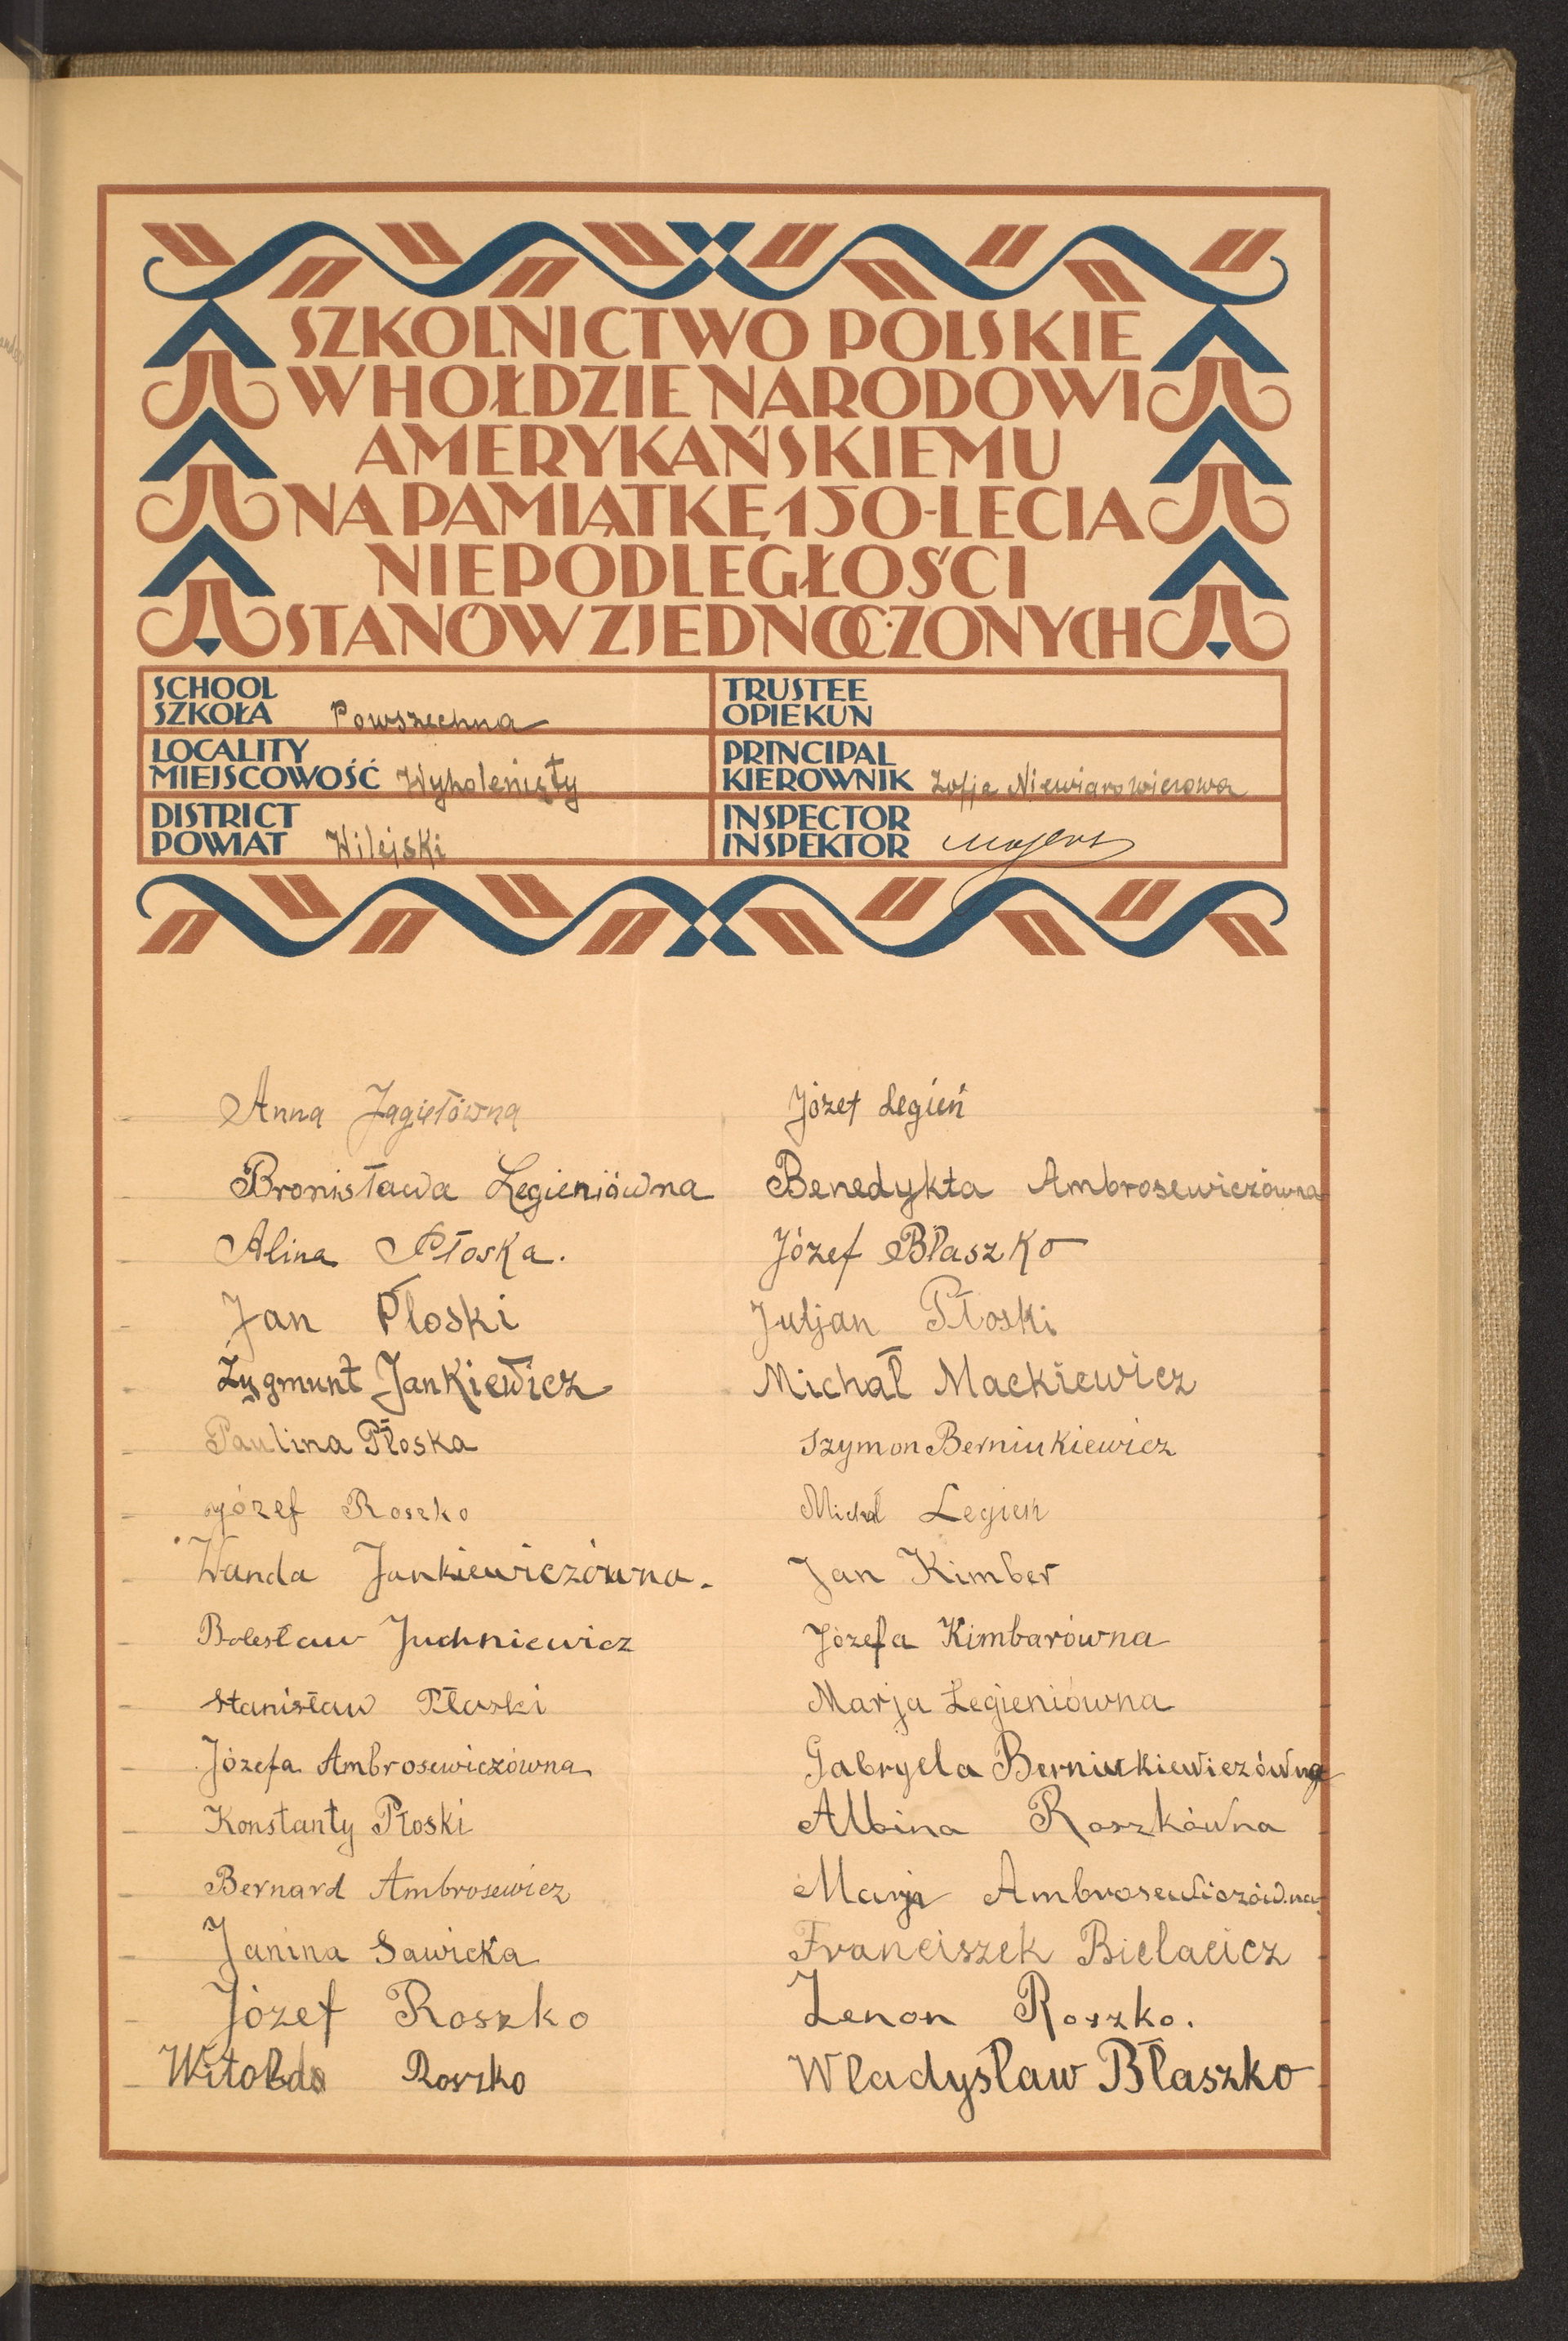 SZKOLNICTWO POLSKIE
W HOŁDZIE NARODOWI
AMERYKAŃSKIEMU
NA PAMIĄTKĘ 150-LECIA
NIEPODLEGŁOŚCI
STANÓW ZJEDNOCZONYCH
SCHOOL
SZKOŁA Powszechna
TRUSTEE
OPIEKUN
LOCALITY
MIEJSCOWOŚĆ
PRINCIPAL
KIEROWNIK Zofja Niewiarowiczowa
DISTRICT
POWIAT Wilejski
INSPECTOR
INSPEKTOR
Anna Jagiełówna
Bronisława Legieniówna
Alina Płoska.
Jan Płoski
Zygmunt Jankiewicz
Paulina Płoska
Józef Roszko
Wanda Jankiewiczówna.
Bolesław Juchniewicz
Stanisław Płoski
Józefa Ambrosewiczówna
Konstanty Płoski
Bernard Ambrosewicz
Janina Sawicka
Józef Roszko
Witold Roszko
Józef Legień
Benedykta Ambrosewiczówna
Józef Błaszko
Juljan Płoski
Michał Mackiewicz
Szymon Berniukiewicz
Michał Legień
Jan Kimber
Józefa Kimbarówna
Marja Legieniówna
Gabryela Berniukiewiczówna
Albina Roszkówna
Marja Ambrosewiczówna
Franciszek Bielacicz
Zenon Roszko.
Władysław Błaszko